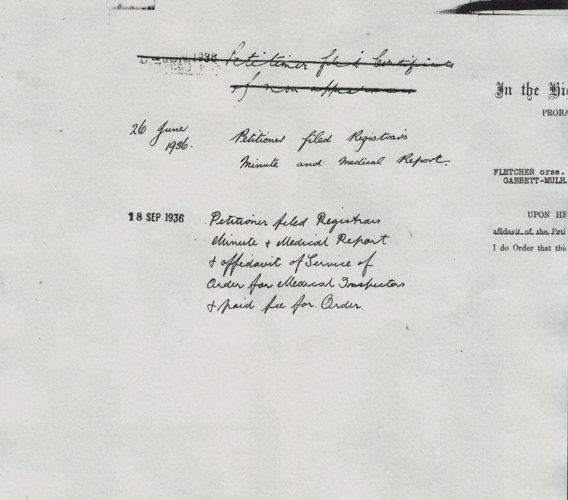 JUN 1936 Petitioner filed Certificate
of non appearance
26 June
1936.
Petitioner filed Registrars
Minute and Medical Report.
18 SEP 1936
Petitioner filed Registrars
Minute & Medical Report
& affidavit of Service of
Order for Medical Inspectors
& paid fee for Order.
In the Hig
PROBA
FLETCHER orse.
GABBETT-MULH
UPON HE
affidavit of the Peti
I do Order that this